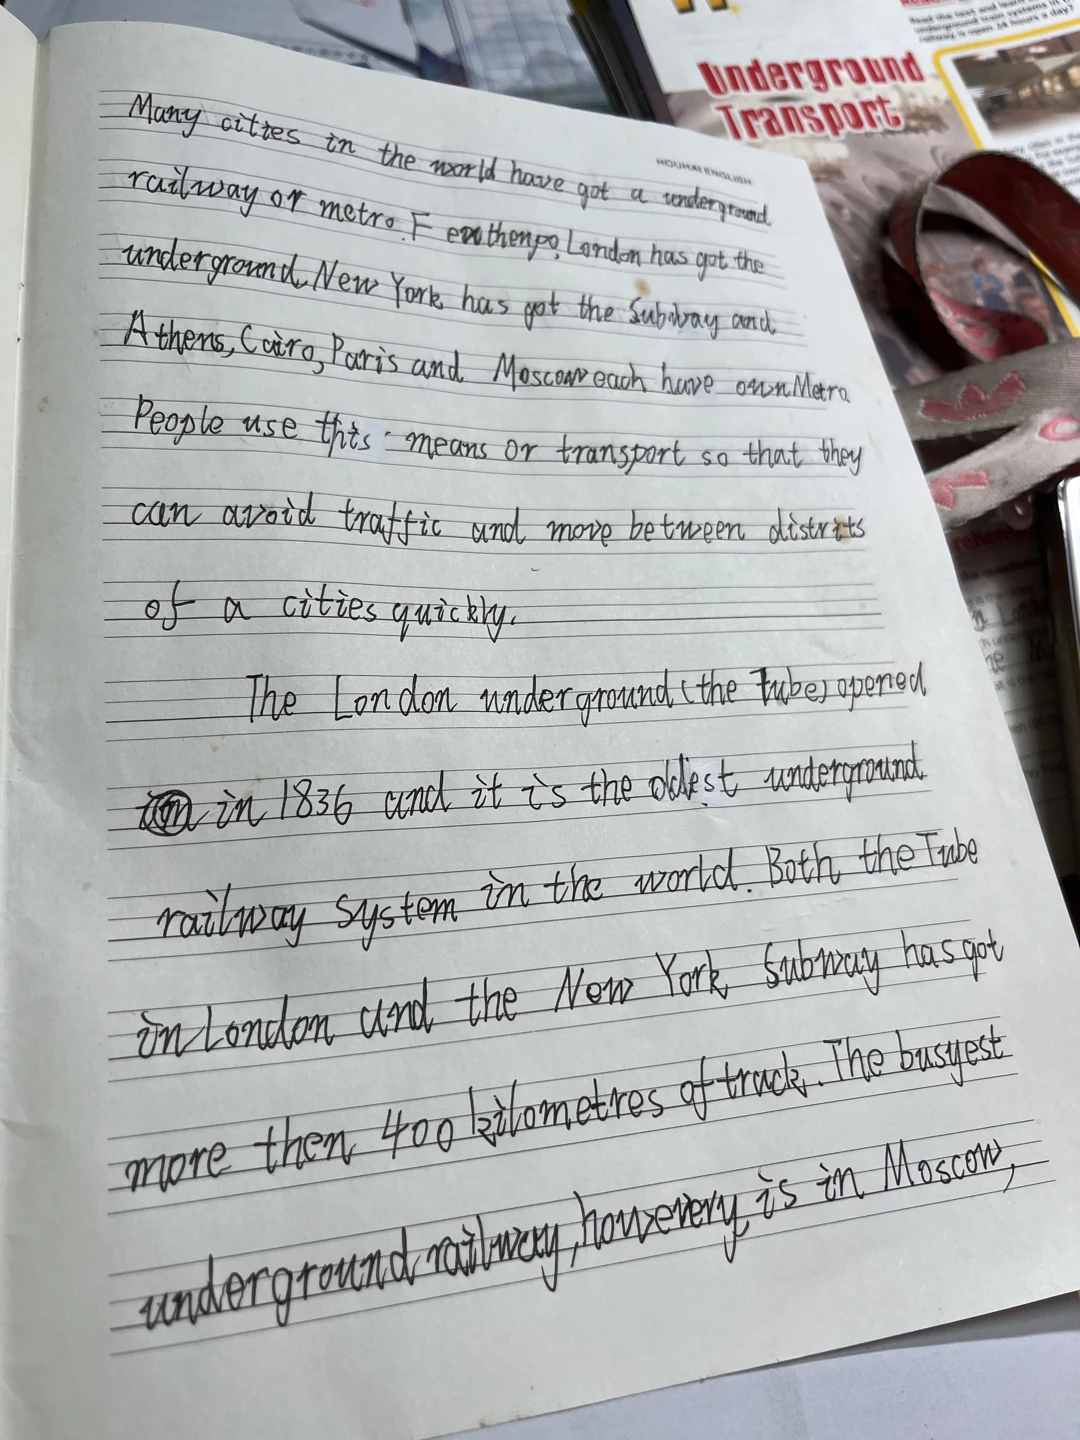 Many cities in the world have got a underground
railway or metro. F London has got the
underground, New York has got the Subway and
Athens, Cairo, Paris and Moscow each have own Metro
People use this means or transport so that they
can avoid traffic and move between
of a cities quickly.
The London underground (the Tube) opened
in 1836 and it is the oldest underground
railway system in the world. Both the Tube
in London and the New York Subway has got
more then 400 kilometres of track. The busyest
underground railway, howevery, is in Moscow,
HOUHAI ENGLISH
Underground
Transport